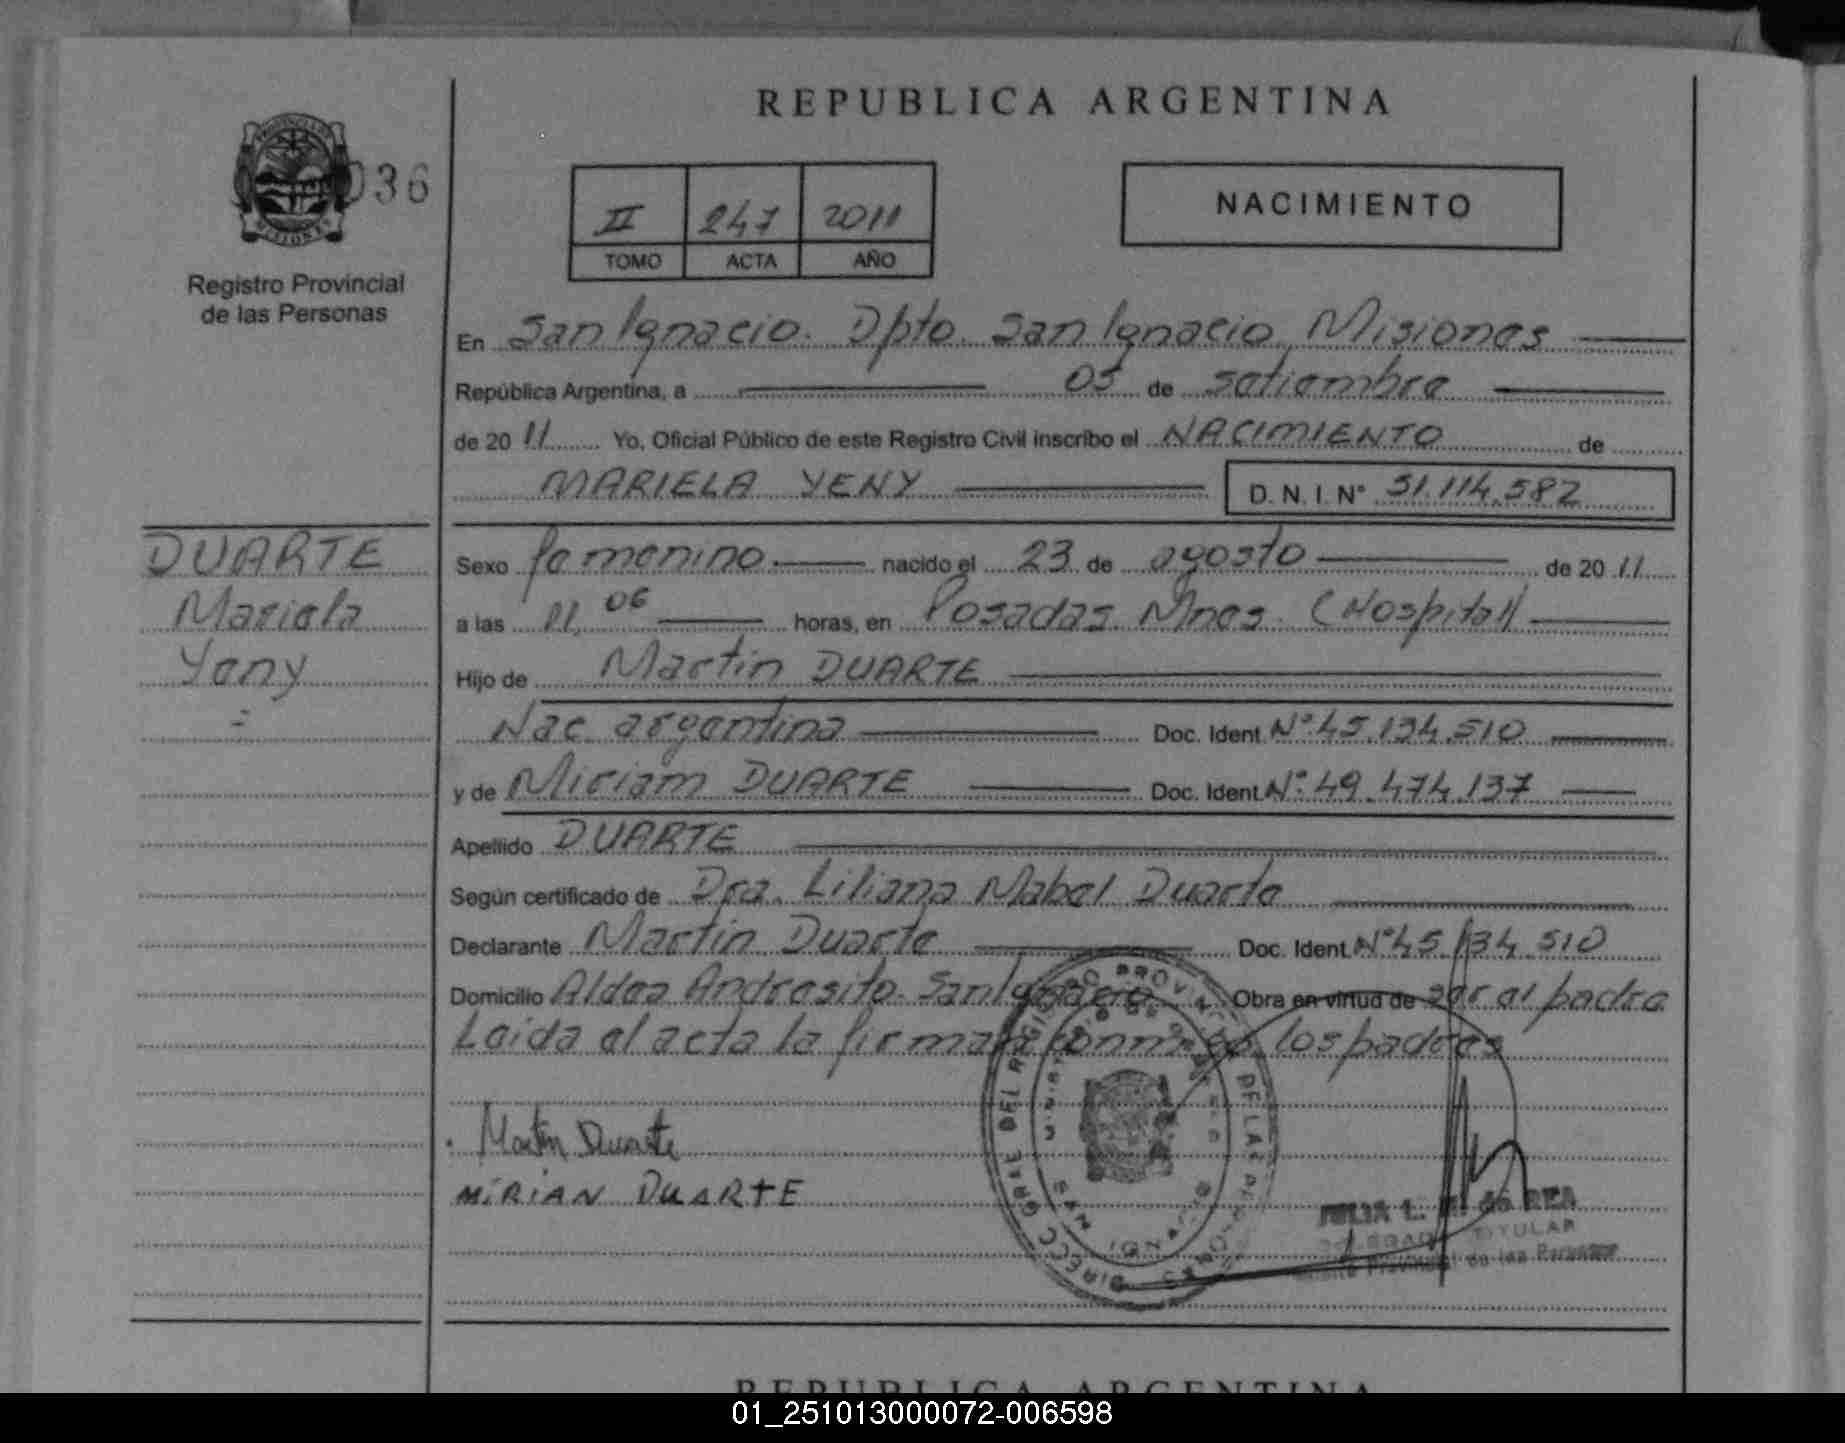 REPUBLICA ARGENTINA
036
II 247 2011
TOMO ACTA AÑO
NACIMIENTO
Registro Provincial
de las Personas
En San Ignacio. Dpto. San Ignacio Misiones
República Argentina, a 05 de setiembre
de 20 11 Yo, Oficial Público de este Registro Civil inscribo el NACIMIENTO de
MARIELA YENY D. N. I. N° 51.114.582
DUARTE
Mariela
Yeny
Sexo femenino nacido el 23 de agosto de 20 11
a las 11,06 horas, en Posadas Mnes. (Hospital)
Hijo de Martin DUARTE
Nac. argentina Doc. Ident. N°: 45.134.510
y de Miriam DUARTE Doc. Ident. N°: 49.474.137
Apellido DUARTE
Según certificado de Dra. Liliana Mabel Duarte
Declarante Martin Duarte Doc. Ident. N° 45.134.510
Domicilio Aldea Andresito. San Ignacio Obra en virtud de ser el padre
Leida el acta la firman conmigo los padres
Martin Duarte
MIRIAN DUARTE
DIRECC. GRAL. DEL REGISTRO PROVINCIAL DE LAS PERSONAS
SAN IGNACIO
JULIA L. de REA
DELEGADA TITULAR
Registro Provincial de las Personas
REPUBLICA ARGENTINA
01_251013000072-006598